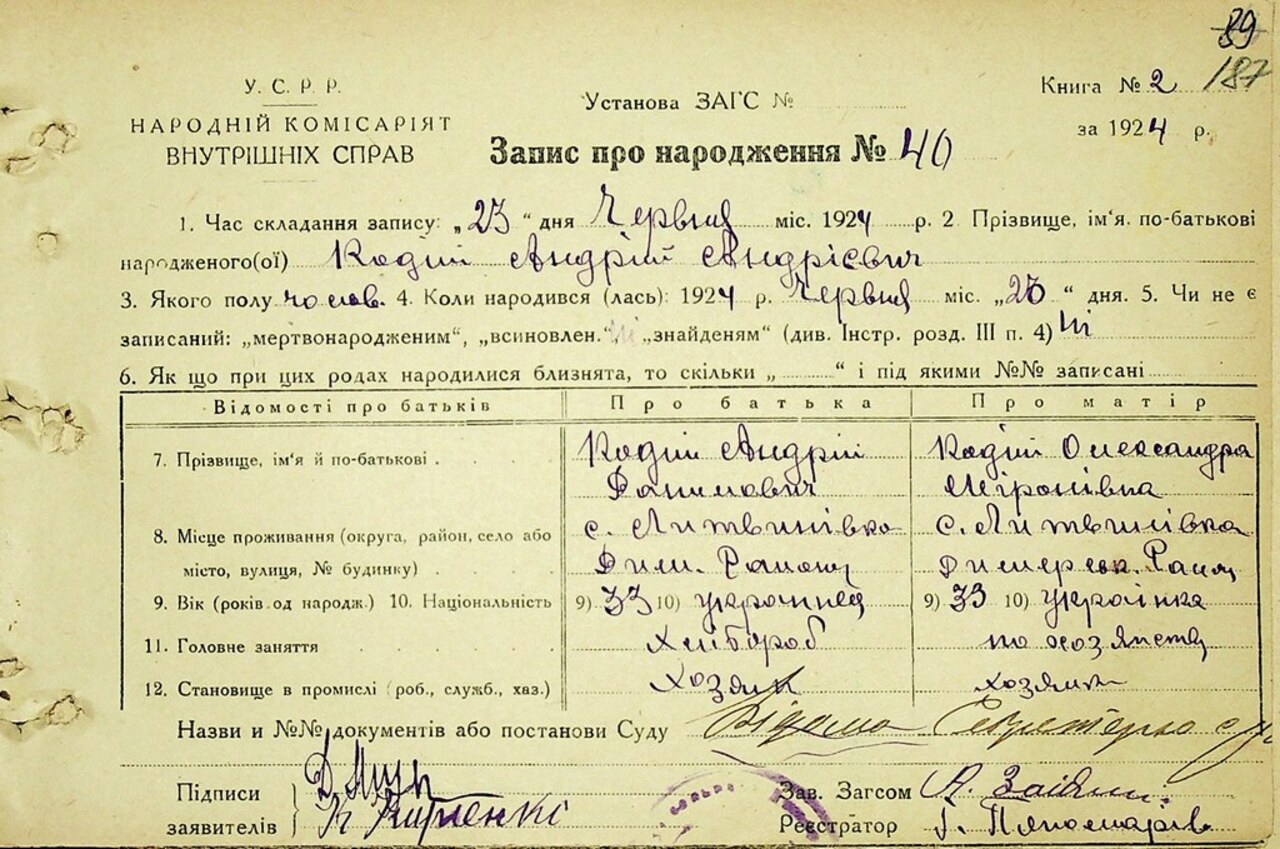 39
187
У. С. Р. Р.
НАРОДНІЙ КОМІСАРІЯТ
ВНУТРІШНІХ СПРАВ
Установа ЗАГС №
Книга № 2
за 1924 р.
Запис про народження № 40
1. Час складання запису: „23“ дня Червня міс. 1924 р. 2 Прізвище, ім'я. по-батькові
народженого(ої) Кодій Андрій Андрієвич
3. Якого полу чолов. 4. Коли народився (лась): 1924 р. Червня міс. „23“ дня. 5. Чи не є
записаний: „мертвонародженим“, „всиновлен.“, „знайденям“ (див. Інстр. розд. III п. 4) Ні
6. Як що при цих родах народилися близнята, то скільки „ “ і під якими №№ записані
Відомості про батьків Про батька Про матір
7. Прізвище, ім'я й по-батькові . Кодій Андрій Кодій Олександра
Данилович Міронівка
8. Місце проживання (округа, район, село або с. Литвинівка с. Литвинівка
місто, вулиця, № будинку) . Дим. Району Димерськ. Району
9. Вік (років од народж.) 10. Національність 9) 33 10) українец 9) 33 10) українка
11. Головне заняття . . . . Хлібороб по хозяйству
12. Становище в промислі (роб., служб., хаз.) хозяин хозяйка
Назви и №№ документів або постанови Суду Відомо Секретерю
Підписи Д.
заявителів К
Зав. Загсом А.
Реєстратор Г. Пономарів